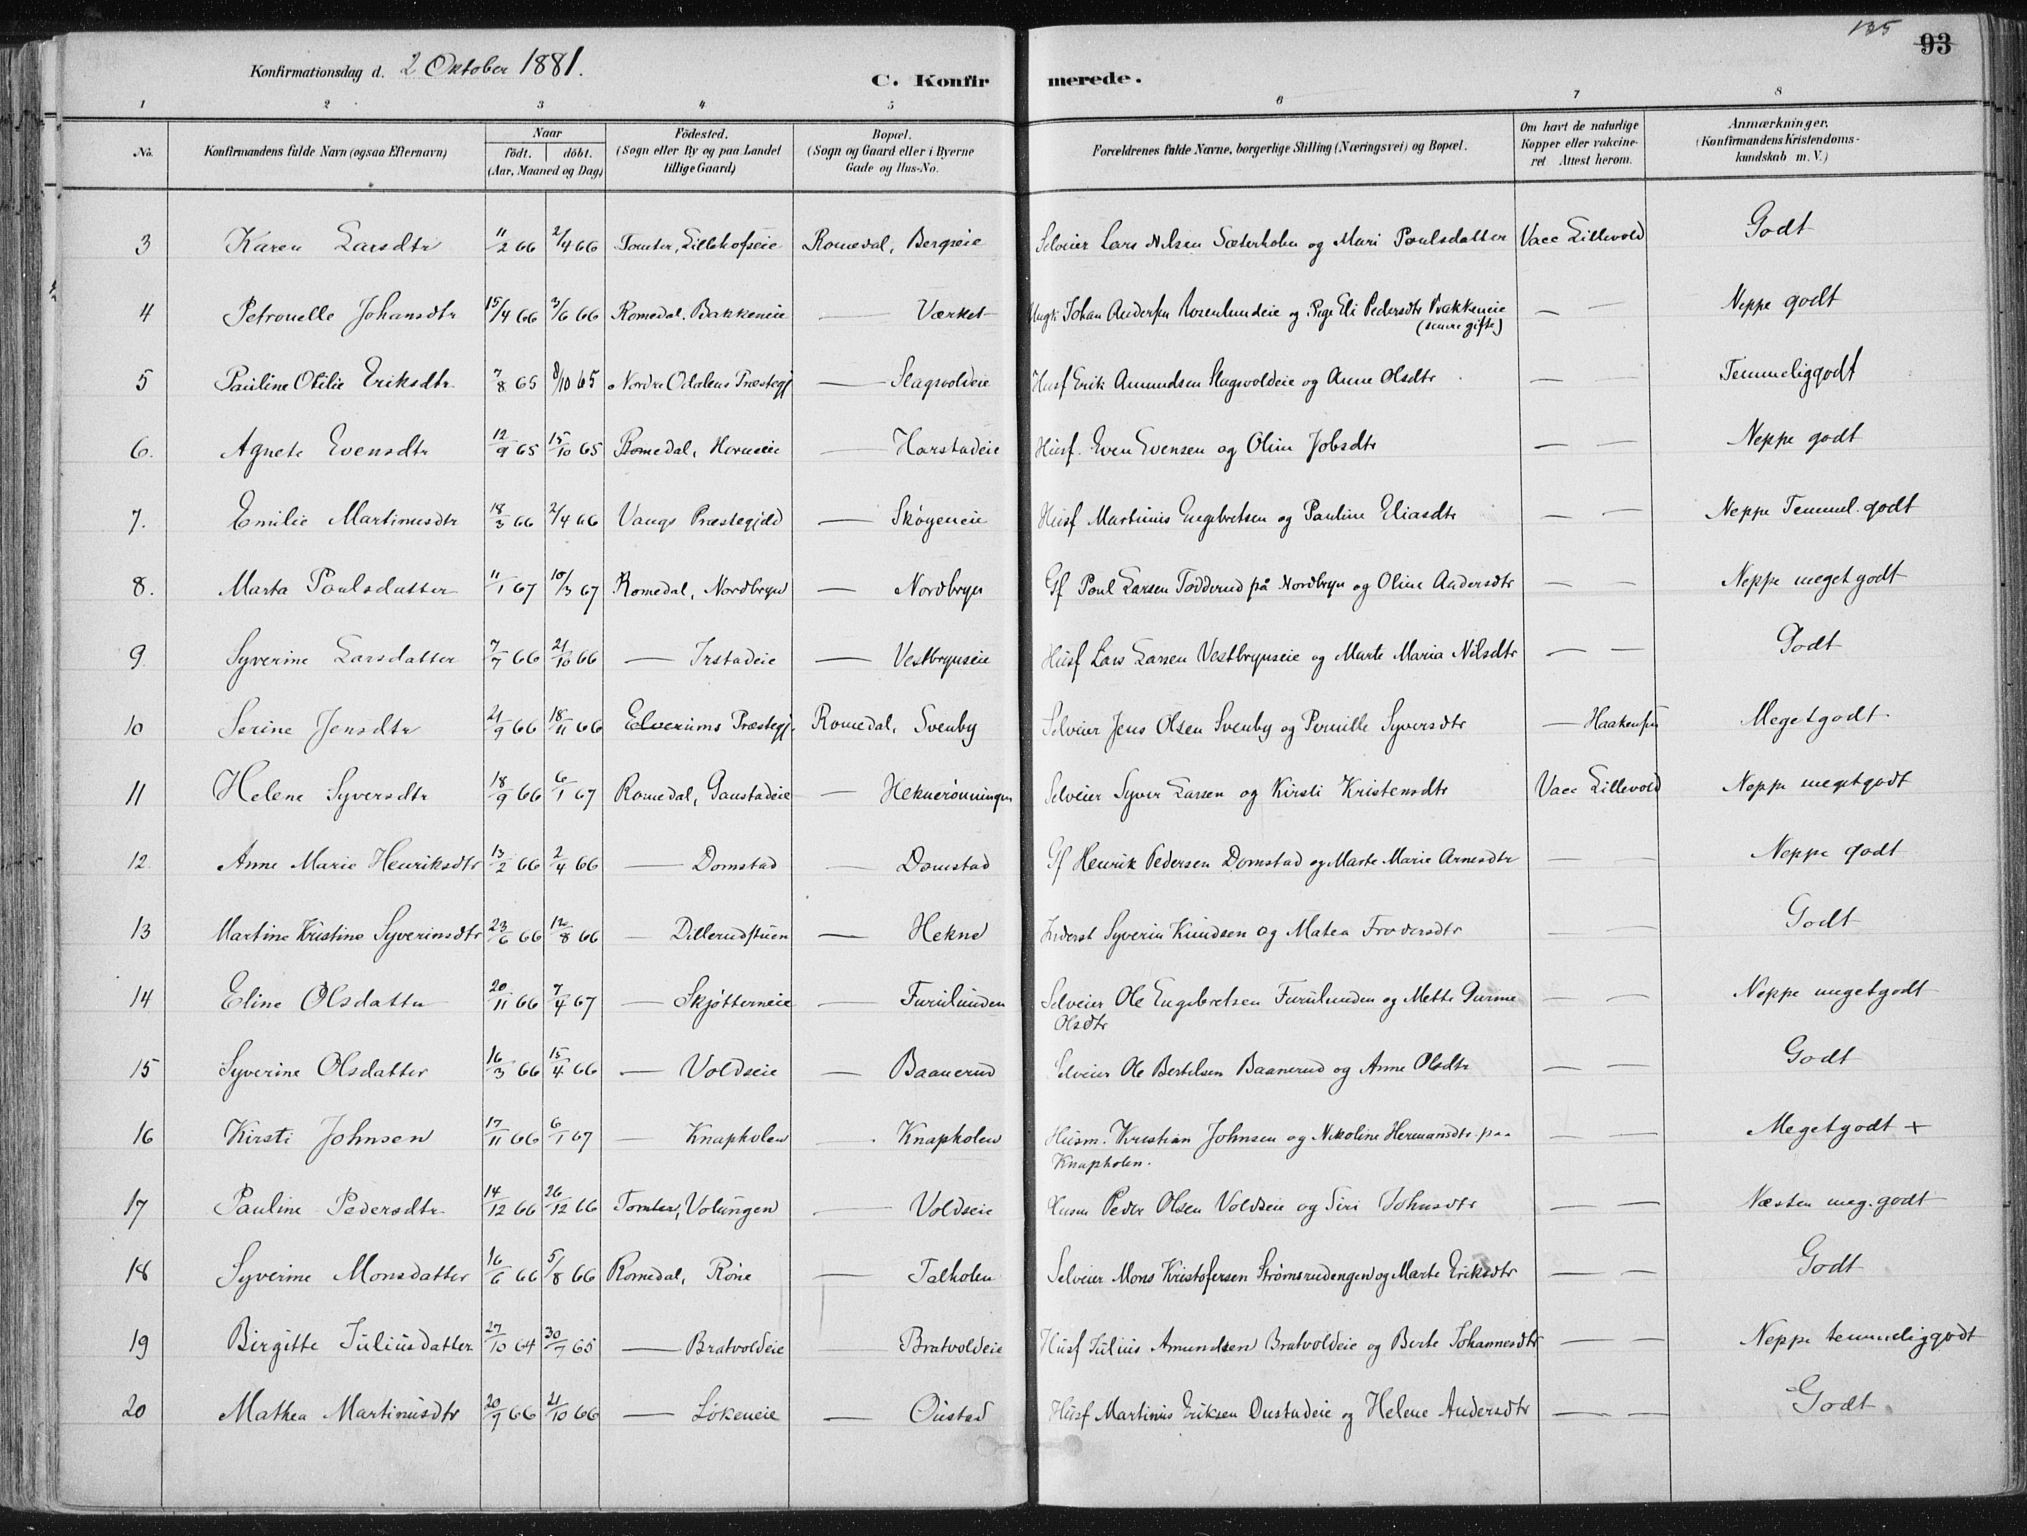 135
93
Konfirmationsdag d. 2 Oktober 1881.
C. Konfirmerede.
1 2 3 4 5 6 7 8
No. Konfirmandens fulde Navn (ogsaa Efternavn) Naar födt. döbt. (Aar, Maaned og Dag) Födested. (Sogn eller By og paa Landet tillige Gaard) Bopæl. (Sogn og Gaard eller i Byerne Gade og Hus-No. Forældrenes fulde Navne, borgerlige Stilling (Næringsvei) og Bopæl. Om havt de naturlige Kopper eller vakcineret Attest herom. Anmærkninger. (Konfirmandens Kristendomskundskab m. V.)
3 Karen Larsdtr 11/2 66 2/4 66 Tomter, Lillehofseie Romedal, Bergseie Selveier Lars Nilsen Sæterholen og Mari Poulsdatter Vacc Lillevold Godt
4 Petronelle Johansdtr 15/4 66 3/6 66 Romedal, Bakkeneie — Værket Ungk Johan Andersen Rosenlundeie og Pige Eli Pedersdtr Bakkeneie — — Neppe godt
(senere gifte)
5 Pauline Otilie Eriksdtr 7/8 65 8/10 65 Nordre Odalens Præstegj — Slagsvoldeie Husf Erik Amundsen Slagsvoldeie og Anne Olsdtr — — Temmeliggodt
6. Agnete Evensdtr 12/9 65 15/10 65 Romedal, Horneseie — Harstadeie Husf. Even Evensen og Oline Jobsdtr — — Neppe godt
7. Emilie Martinusdtr 18/3 66 2/4 66 Vangs Præstegjeld — Skogeneie Husf Martinus Engebretsen og Pauline Eliasdtr — — Neppe Temmel. godt
8. Marta Poulsdatter 11/1 67 10/3 67 Romedal, Nordbryn — Nordbryn Gf Poul Larsen Todderud på Nordbryn og Oline Andersdtr — — Neppe megetgodt
9. Syverine Larsdatter 7/7 66 21/10 66 — Irstadeie — Vestbrynseie Husf Lars Larsen Vestbrynseie og Marte Maria Nilsdtr — — Godt
10 Serine Jensdtr 21/9 66 18/11 66 Elverums Præstegj. Romedal, Svenby Selveier Jens Olsen Svenby og Pernille Syversdtr — Haakensen Megetgodt.
11 Helene Syversdtr 18/9 66 6/1 67 Romedal, Gaustadeie — Heknerønningen Selveier Syver Larsen og Kirsti Kristensdtr Vacc Lillevold Neppe megetgodt
12. Anne Marie Henriksdtr 13/2 66 2/4 66 — Domstad — Domstad Gf Henrik Pedersen Domstad og Marte Marie Arnesdtr — — Neppe godt
13 Martine Kristine Syverinsdtr 23/6 66 12/8 66 — Dillerudstuen — Hekne Inderst Syverin Knudsen og Matea Frodersdtr — — Godt
14 Eline Olsdatter 20/11 66 7/4 67 — Skjøtterneie — Furulunden Selveier Ole Engebretsen Furulunden og Mette Gurine — — Neppe megetgodt
Olsdtr
15 Syverine Olsdatter 16/3 66 15/4 66 — Voldseie — Baanerud Selveier Ole Bertelsen Baanerud og Anne Olsdtr — — Godt
16 Kirsti Johnsen 17/11 66 6/1 67 — Knapholen — Knapholen Husm. Kristian Johnsen og Nikoline Hermansdtr paa — — Megetgodt +
Knapholen.
17 Pauline Pedersdtr 14/12 66 26/12 66 Tomter, Volungen — Voldseie Husm Peder Olsen Voldseie og Siri Johnsdtr — — Næsten meg. godt
18 Syverine Monsdatter 16/6 66 5/8 66 Romedal, Röne — Talholen Selveier Mons Kristofersen Strømsrudengen og Marte Eriksdtr — — Godt
19 Birgitte Juliusdatter 27/10 64 30/7 65 — Bratvoldeie — Bratvoldeie Husf Julius Amundsen Bratvoldeie og Berte Johannesdtr — — Neppe temmeliggodt
20 Mathea Martinusdtr 20/9 66 21/10 66 — Løkeneie — Oustad Husf Martinus Eriksen Oustadeie og Helene Andersdtr — — Godt